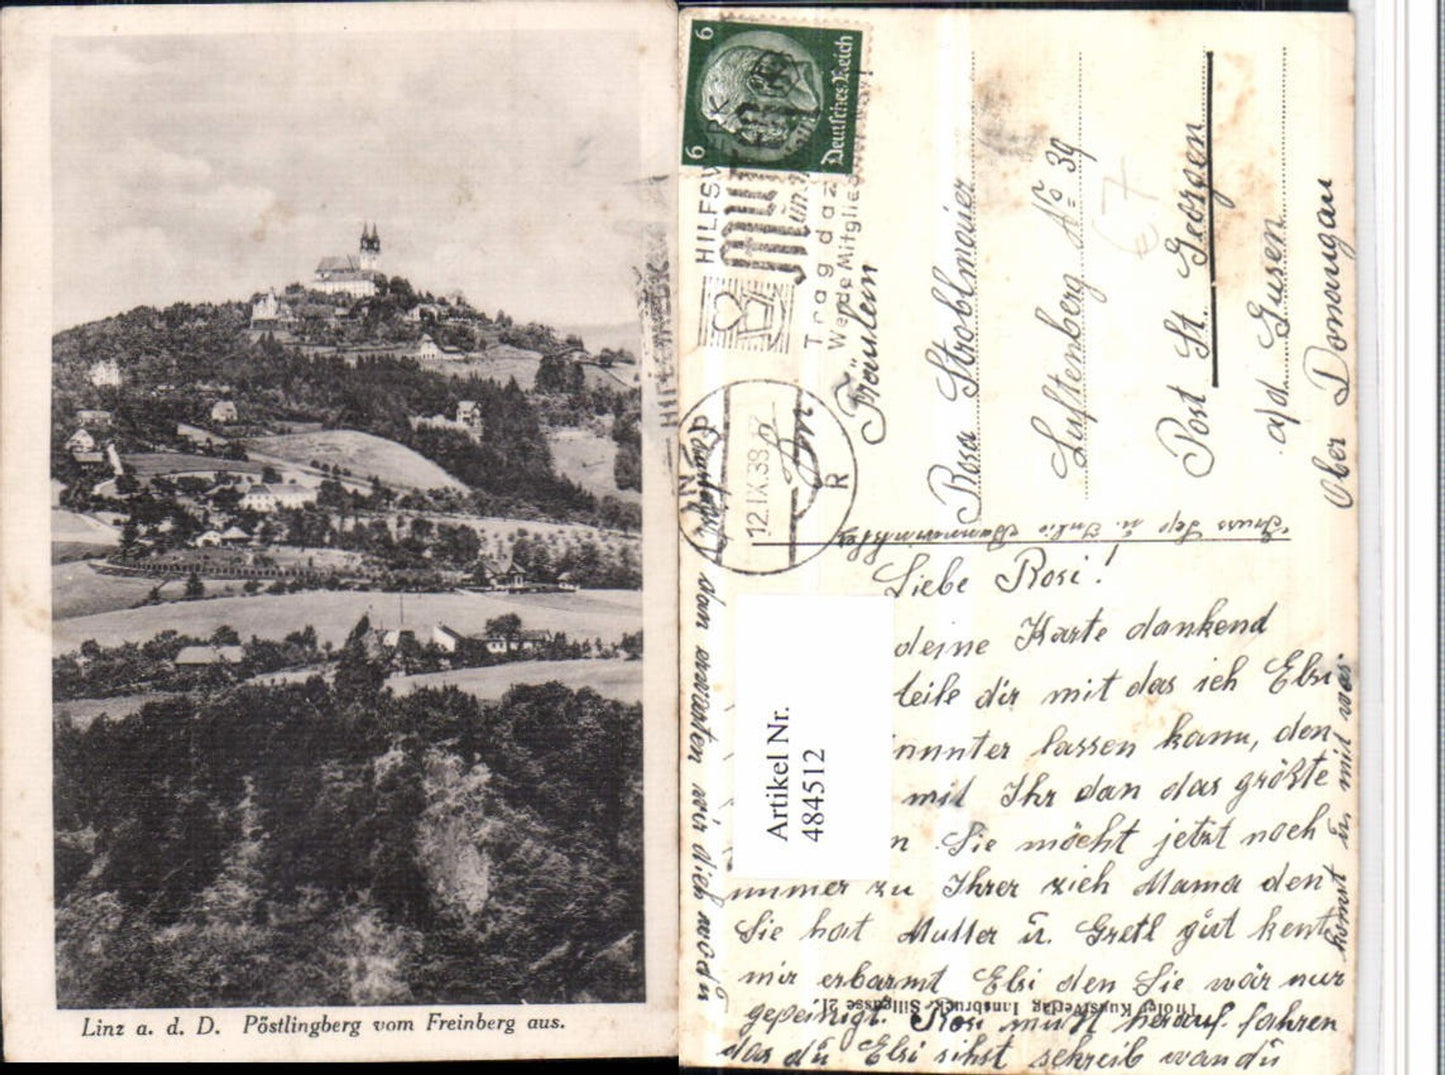 Linz a. d. D. Pöstlingberg vom Freinberg aus.
6 6
Deutsches Reich
HILFSWERK
Mutter
Trag daz
Werde Mitglied
12.IX.38
R
Fräulein
Rosa Stroblmaier
Luftenberg No 39
Post St. Georgen
a/d. Gusen
Ober Donaugau
Gruss Sep u. Julie
Liebe Rosi!
deine Karte dankend
teile dir mit das ich Elsi
nunter lassen kann, den
mit Ihr dan das größte
n Sie möcht jetzt noch
immer zu Ihrer zieh Mama den
Sie hat Mutter ü. Gretl güt kent
mir erbarmt Elsi den Sie wär nur
gepeinigt. Rosi müßt herauf fahren
das dü Elsi sihst schreib wan dü
komst ü. mit was
dan erwarten wir dich wo dü
Tiroler Kunstverlag Innsbruck, Sillgasse 21.
Artikel Nr.
484512